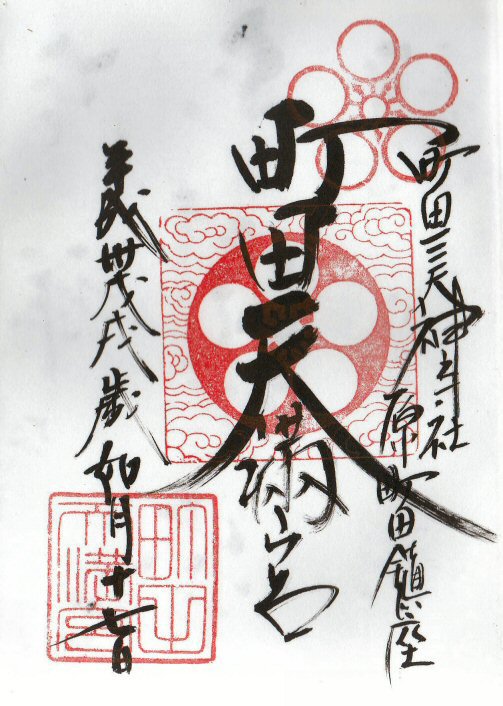 町田三天神之社
原町田鎮座
町田天満宮
平成卅戊戌歳
如月十七日